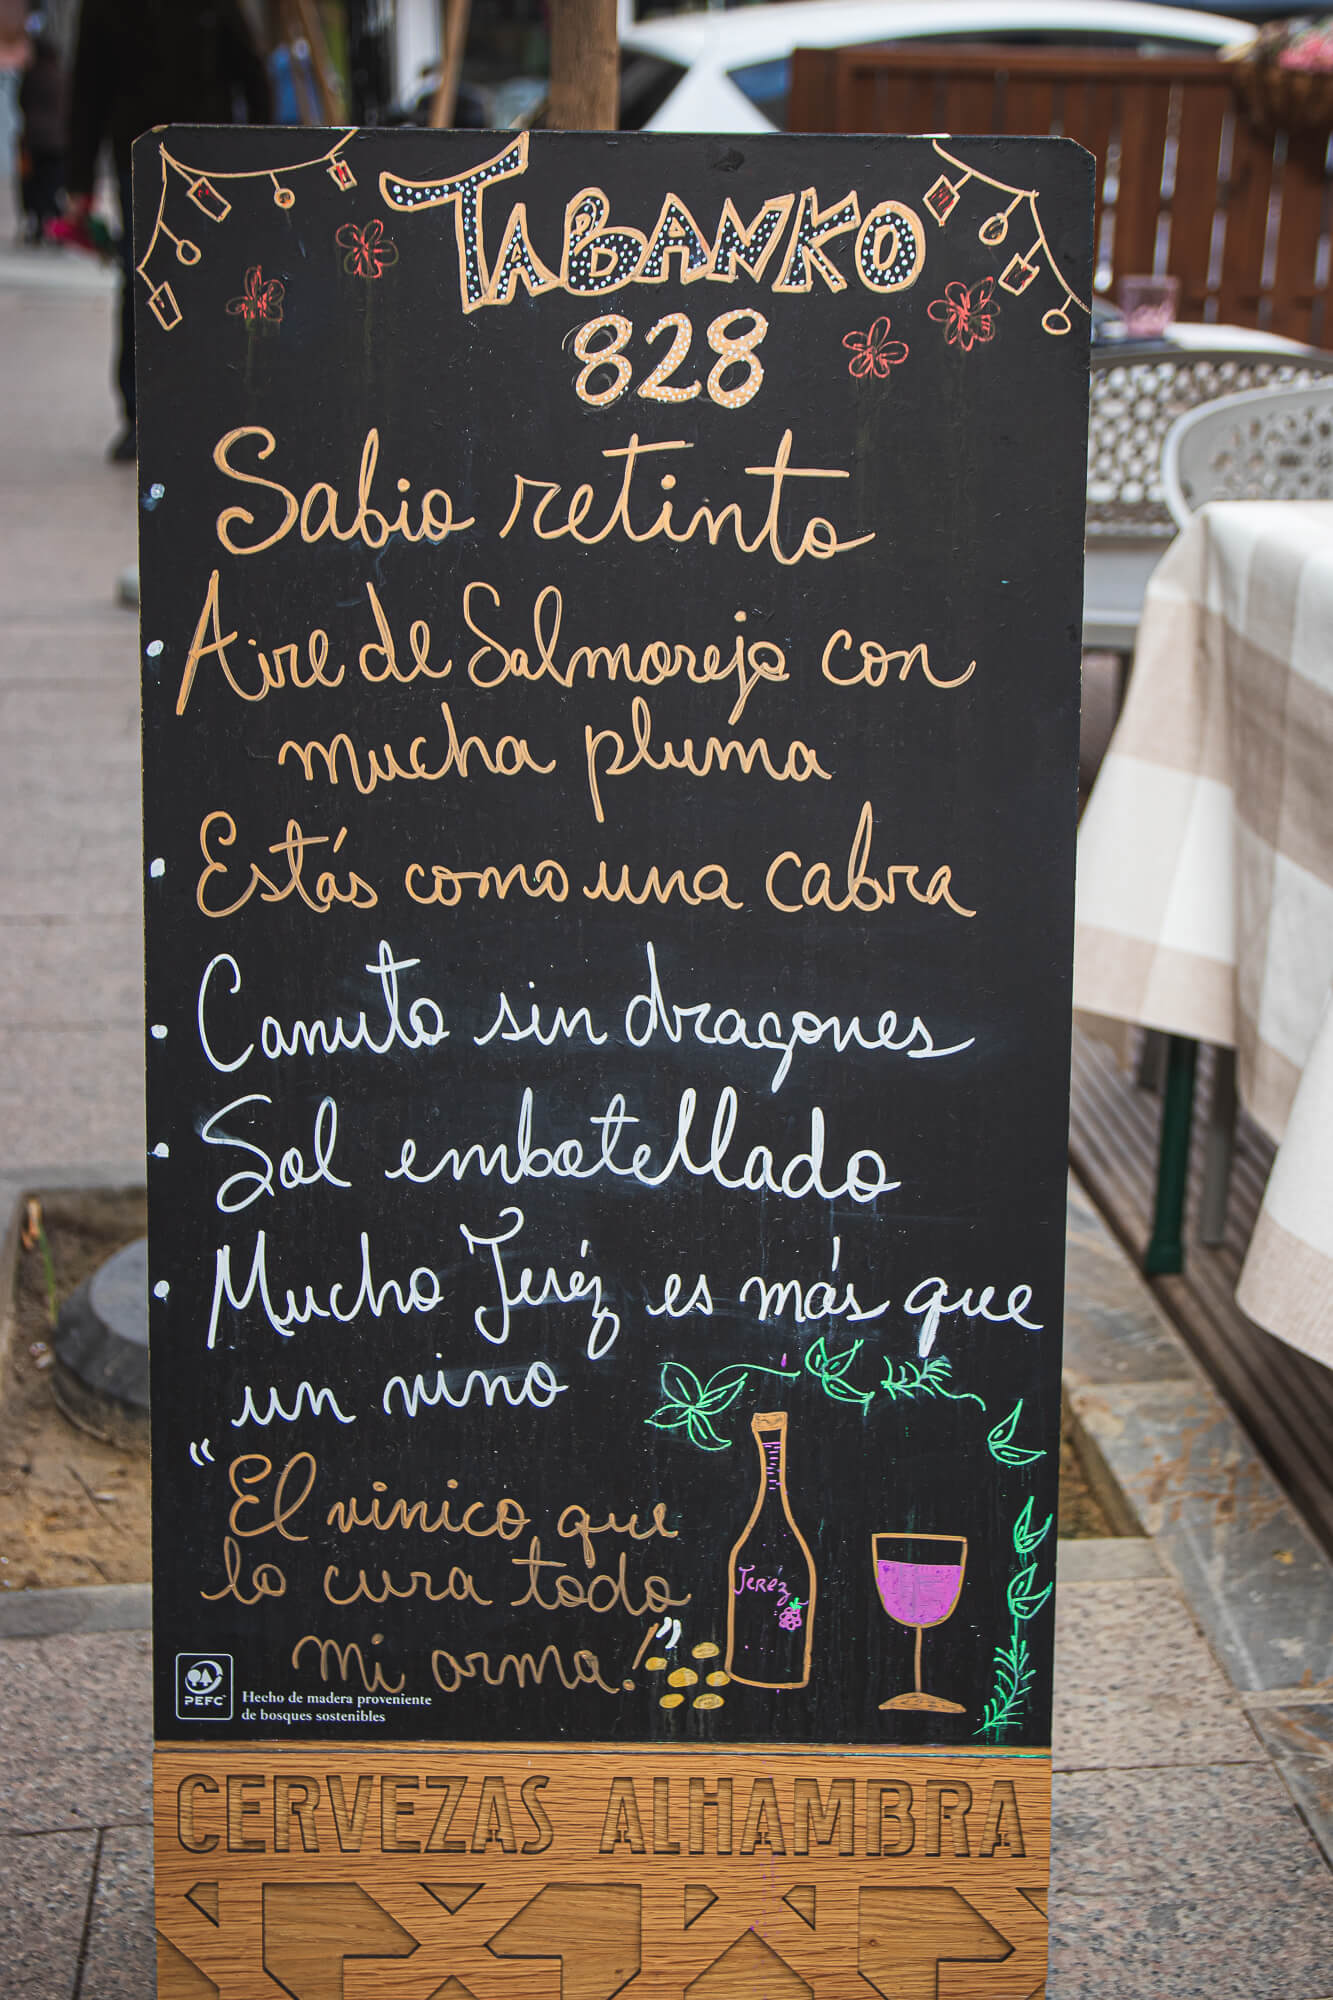 TABANKO
828
• Sabio retinto
• Aire de Salmorejo con
mucha pluma
• Estás como una cabra
• Canuto sin dragones
• Sol embotellado
• Mucho Jeréz es más que
un vino
"El vinico que
lo cura todo
mi arma!"
Jeréz
PEFC™
Hecho de madera proveniente
de bosques sostenibles
CERVEZAS ALHAMBRA